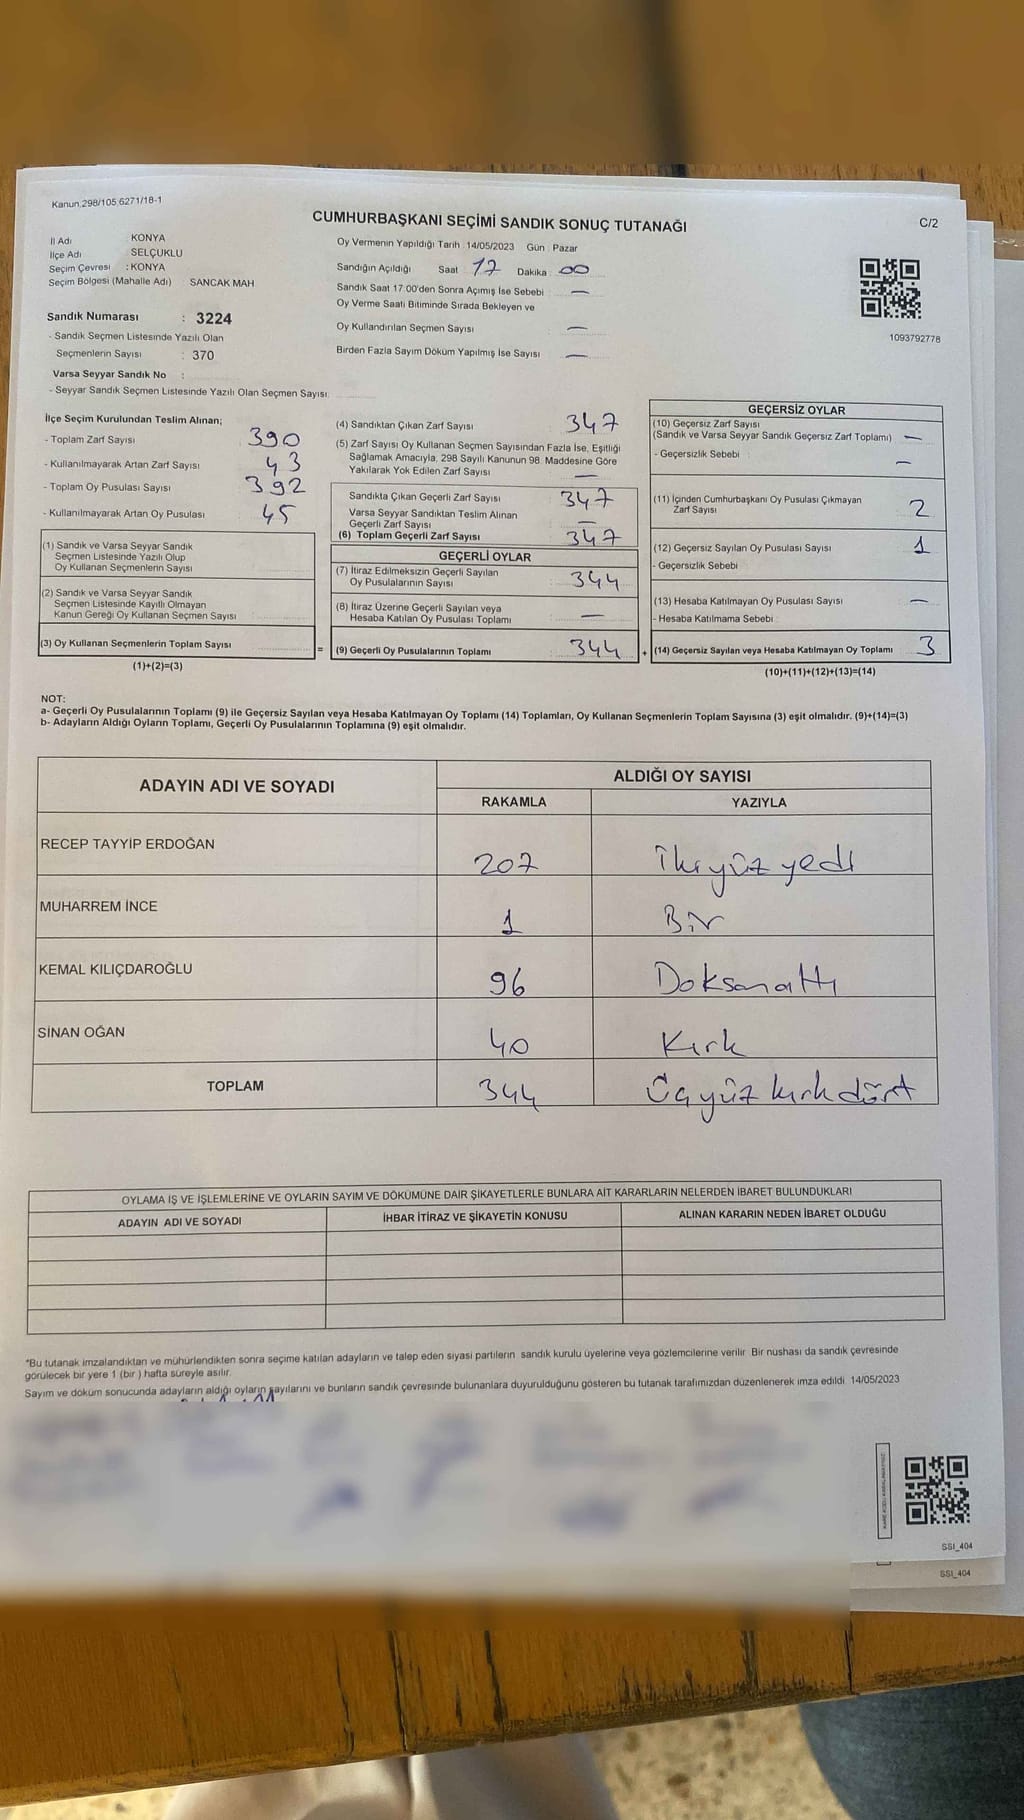 Kanun,298/105,6271/18-1
CUMHURBAŞKANI SEÇİMİ SANDIK SONUÇ TUTANAĞI
C/2
İl Adı KONYA
İlçe Adı : SELÇUKLU
Seçim Çevresi : KONYA
Seçim Bölgesi (Mahalle Adı) SANCAK MAH
Sandık Numarası : 3224
- Sandık Seçmen Listesinde Yazılı Olan
Seçmenlerin Sayısı : 370
Varsa Seyyar Sandık No :
- Seyyar Sandık Seçmen Listesinde Yazılı Olan Seçmen Sayısı:
Oy Vermenin Yapıldığı Tarih 14/05/2023 Gün : Pazar
Sandığın Açıldığı Saat 17 Dakika : 00
Sandık Saat 17:00'den Sonra Açımış İse Sebebi : —
Oy Verme Saati Bitiminde Sırada Bekleyen ve
Oy Kullandırılan Seçmen Sayısı —
Birden Fazla Sayım Döküm Yapılmış İse Sayısı —
1093792778
İlçe Seçim Kurulundan Teslim Alınan;
- Toplam Zarf Sayısı 390
- Kullanılmayarak Artan Zarf Sayısı 43
- Toplam Oy Pusulası Sayısı 392
- Kullanılmayarak Artan Oy Pusulası 45
(1) Sandık ve Varsa Seyyar Sandık
Seçmen Listesinde Yazılı Olup
Oy Kullanan Seçmenlerin Sayısı
(2) Sandık ve Varsa Seyyar Sandık
Seçmen Listesinde Kayıtlı Olmayan
Kanun Gereği Oy Kullanan Seçmen Sayısı
(3) Oy Kullanan Seçmenlerin Toplam Sayısı
(1)+(2)=(3)
=
(4) Sandıktan Çıkan Zarf Sayısı 347
(5) Zarf Sayısı Oy Kullanan Seçmen Sayısından Fazla İse, Eşitliği
Sağlamak Amacıyla, 298 Sayılı Kanunun 98. Maddesine Göre
Yakılarak Yok Edilen Zarf Sayısı —
Sandıkta Çıkan Geçerli Zarf Sayısı 347
Varsa Seyyar Sandıktan Teslim Alınan
Geçerli Zarf Sayısı —
(6) Toplam Geçerli Zarf Sayısı 347
GEÇERLİ OYLAR
(7) İtiraz Edilmeksizin Geçerli Sayılan
Oy Pusulalarının Sayısı 344
(8) İtiraz Üzerine Geçerli Sayılan veya
Hesaba Katılan Oy Pusulası Toplamı —
(9) Geçerli Oy Pusulalarının Toplamı 344
+
GEÇERSİZ OYLAR
(10) Geçersiz Zarf Sayısı
(Sandık ve Varsa Seyyar Sandık Geçersiz Zarf Toplamı) —
- Geçersizlik Sebebi : —
(11) İçinden Cumhurbaşkanı Oy Pusulası Çıkmayan
Zarf Sayısı 2
(12) Geçersiz Sayılan Oy Pusulası Sayısı 1
- Geçersizlik Sebebi
(13) Hesaba Katılmayan Oy Pusulası Sayısı —
- Hesaba Katılmama Sebebi :
(14) Geçersiz Sayılan veya Hesaba Katılmayan Oy Toplamı 3
(10)+(11)+(12)+(13)=(14)
NOT:
a- Geçerli Oy Pusulalarının Toplamı (9) ile Geçersiz Sayılan veya Hesaba Katılmayan Oy Toplamı (14) Toplamları, Oy Kullanan Seçmenlerin Toplam Sayısına (3) eşit olmalıdır. (9)+(14)=(3)
b- Adayların Aldığı Oyların Toplamı, Geçerli Oy Pusulalarının Toplamına (9) eşit olmalıdır.
ADAYIN ADI VE SOYADI ALDIĞI OY SAYISI
RAKAMLA YAZIYLA
RECEP TAYYİP ERDOĞAN 207 ikiyüz yedi
MUHARREM İNCE 1 Bir
KEMAL KILIÇDAROĞLU 96 Doksanaltı
SİNAN OĞAN 40 Kırk
TOPLAM 344 Üçyüz kırk dört
OYLAMA İŞ VE İŞLEMLERİNE VE OYLARIN SAYIM VE DÖKÜMÜNE DAİR ŞİKAYETLERLE BUNLARA AİT KARARLARIN NELERDEN İBARET BULUNDUKLARI
ADAYIN ADI VE SOYADI İHBAR İTİRAZ VE ŞİKAYETİN KONUSU ALINAN KARARIN NEDEN İBARET OLDUĞU
*Bu tutanak imzalandıktan ve mühürlendikten sonra seçime katılan adayların ve talep eden siyasi partilerin sandık kurulu üyelerine veya gözlemcilerine verilir. Bir nushası da sandık çevresinde
görülecek bir yere 1 (bir ) hafta süreyle asılır.
Sayım ve döküm sonucunda adayların aldığı oyların sayılarını ve bunların sandık çevresinde bulunanlara duyurulduğunu gösteren bu tutanak tarafımızdan düzenlenerek imza edildi. 14/05/2023
SSI_404
SSI_404